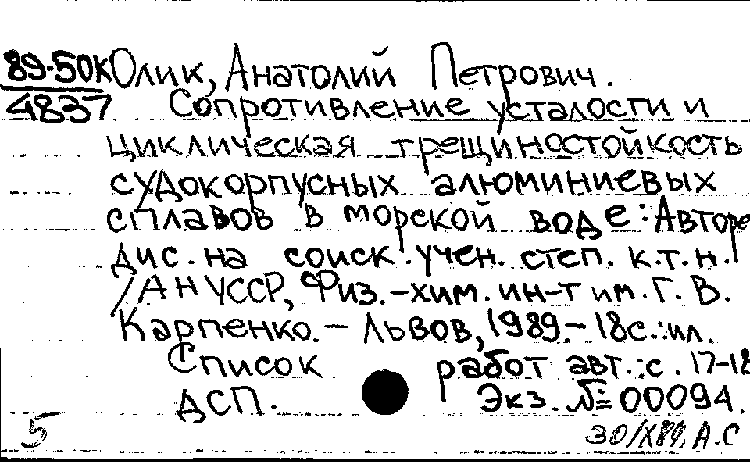 89-50К Олик, Анатолий Петрович.
4837 Сопротивление усталости и
циклическая трещиностойкость
судокорпусных алюминиевых
сплавов в морской воде: Авторе
дис. на соиск. учен. степ. к.т.н.
/АН УССР, Физ.-хим. ин-т им. Г. В.
Карпенко.- Львов, 1989.- 18с.:ил.
Список работ авт.:с. 17-18
ДСП. Экз. № 00094.
5 30/X89, А.С